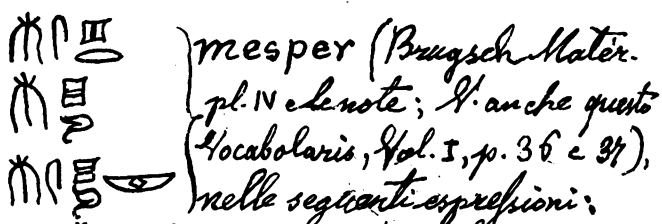 mesper (Brugsch Matér.
pl. IV e le note; V. anche questo
Vocabolario, Vol. I, p. 36 e 37),
nelle seguenti espreſsioni: